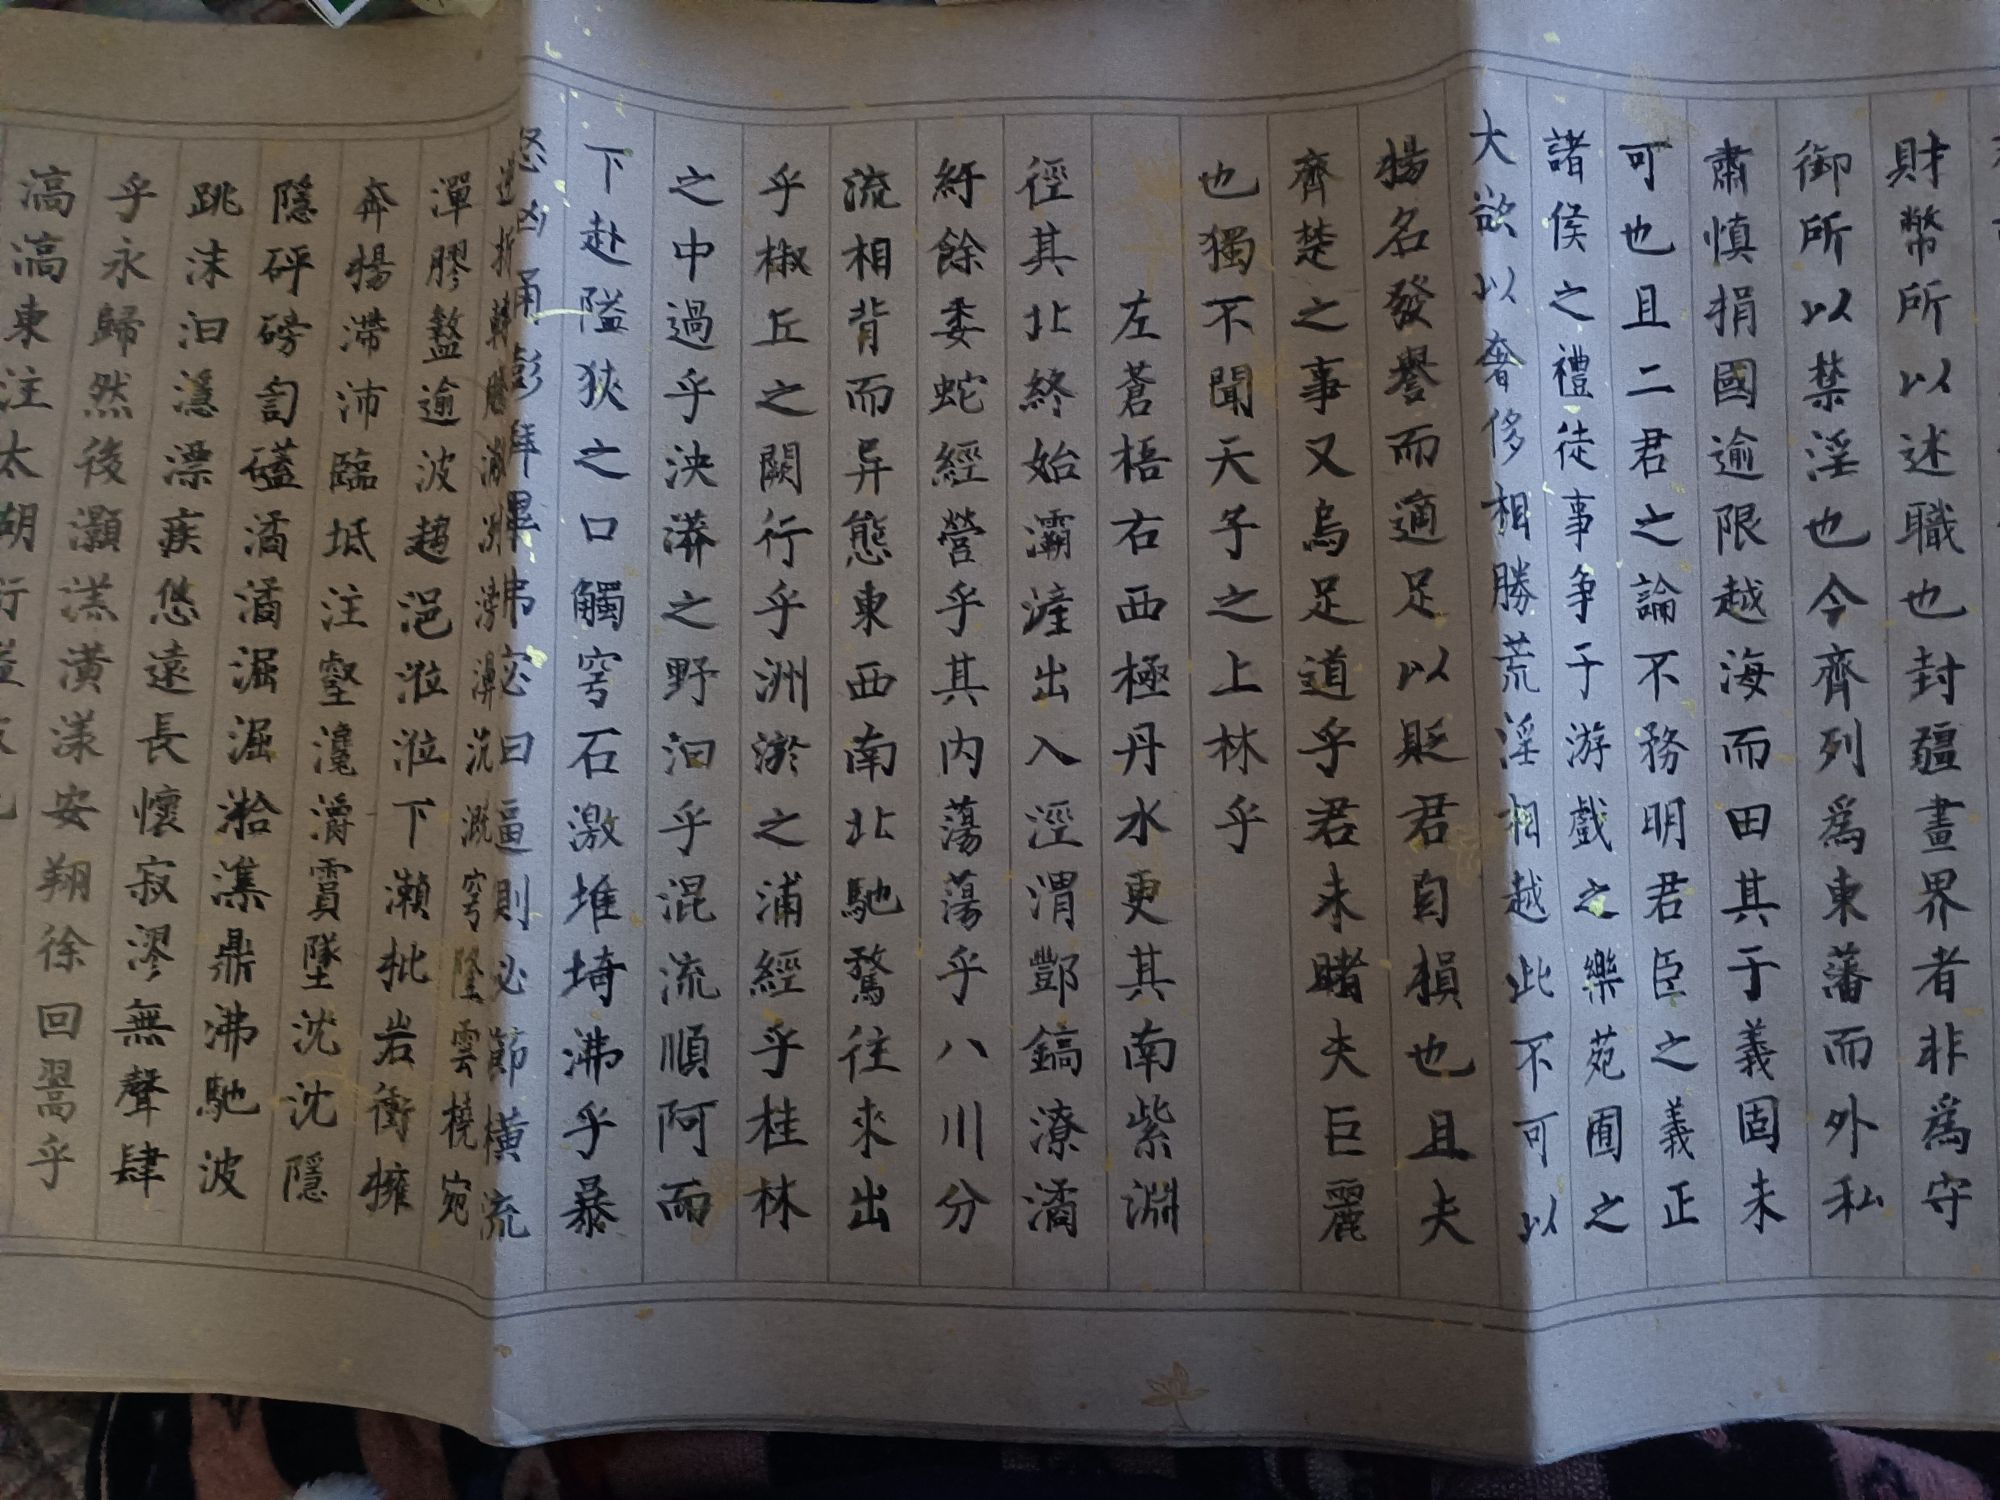 財幣所以述職也封疆畫界者非爲守
御所以禁淫也今齊列爲東藩而外私
肅慎捐國逾限越海而田其于義固未
可也且二君之論不務明君臣之義正
諸侯之禮徒事爭于游戲之樂苑囿之
大欲以奢侈相勝荒淫相越此不可以
揚名發譽而適足以貶君自損也且夫
齊楚之事又烏足道乎君未睹夫巨麗
也獨不聞天子之上林乎
左蒼梧右西極丹水更其南紫淵
徑其北終始灞滻出入涇渭酆鎬潦潏
紆餘委蛇經營乎其內蕩蕩乎八川分
流相背而异態東西南北馳騖往來出
乎椒丘之闕行乎洲淤之浦經乎桂林
之中過乎泱漭之野汩乎混流順阿而
下赴隘狹之口觸穹石激堆埼沸乎暴
怒洶涌彭湃滭弗宓汩逼側泌瀄橫流
逆折轉騰潎洌滂濞沆溉穹隆雲橈宛
潬膠盭逾波趨浥涖涖下瀨批岩衝擁
奔揚滯沛臨坻注壑瀺灂霣墜沈沈隱
隱砰磅訇磕潏潏淈淈湁潗鼎沸馳波
跳沫汩㴔漂疾悠遠長懷寂漻無聲肆
乎永歸然後灝溔潢漾安翔徐回翯乎
滈滈東注太湖衍溢陂